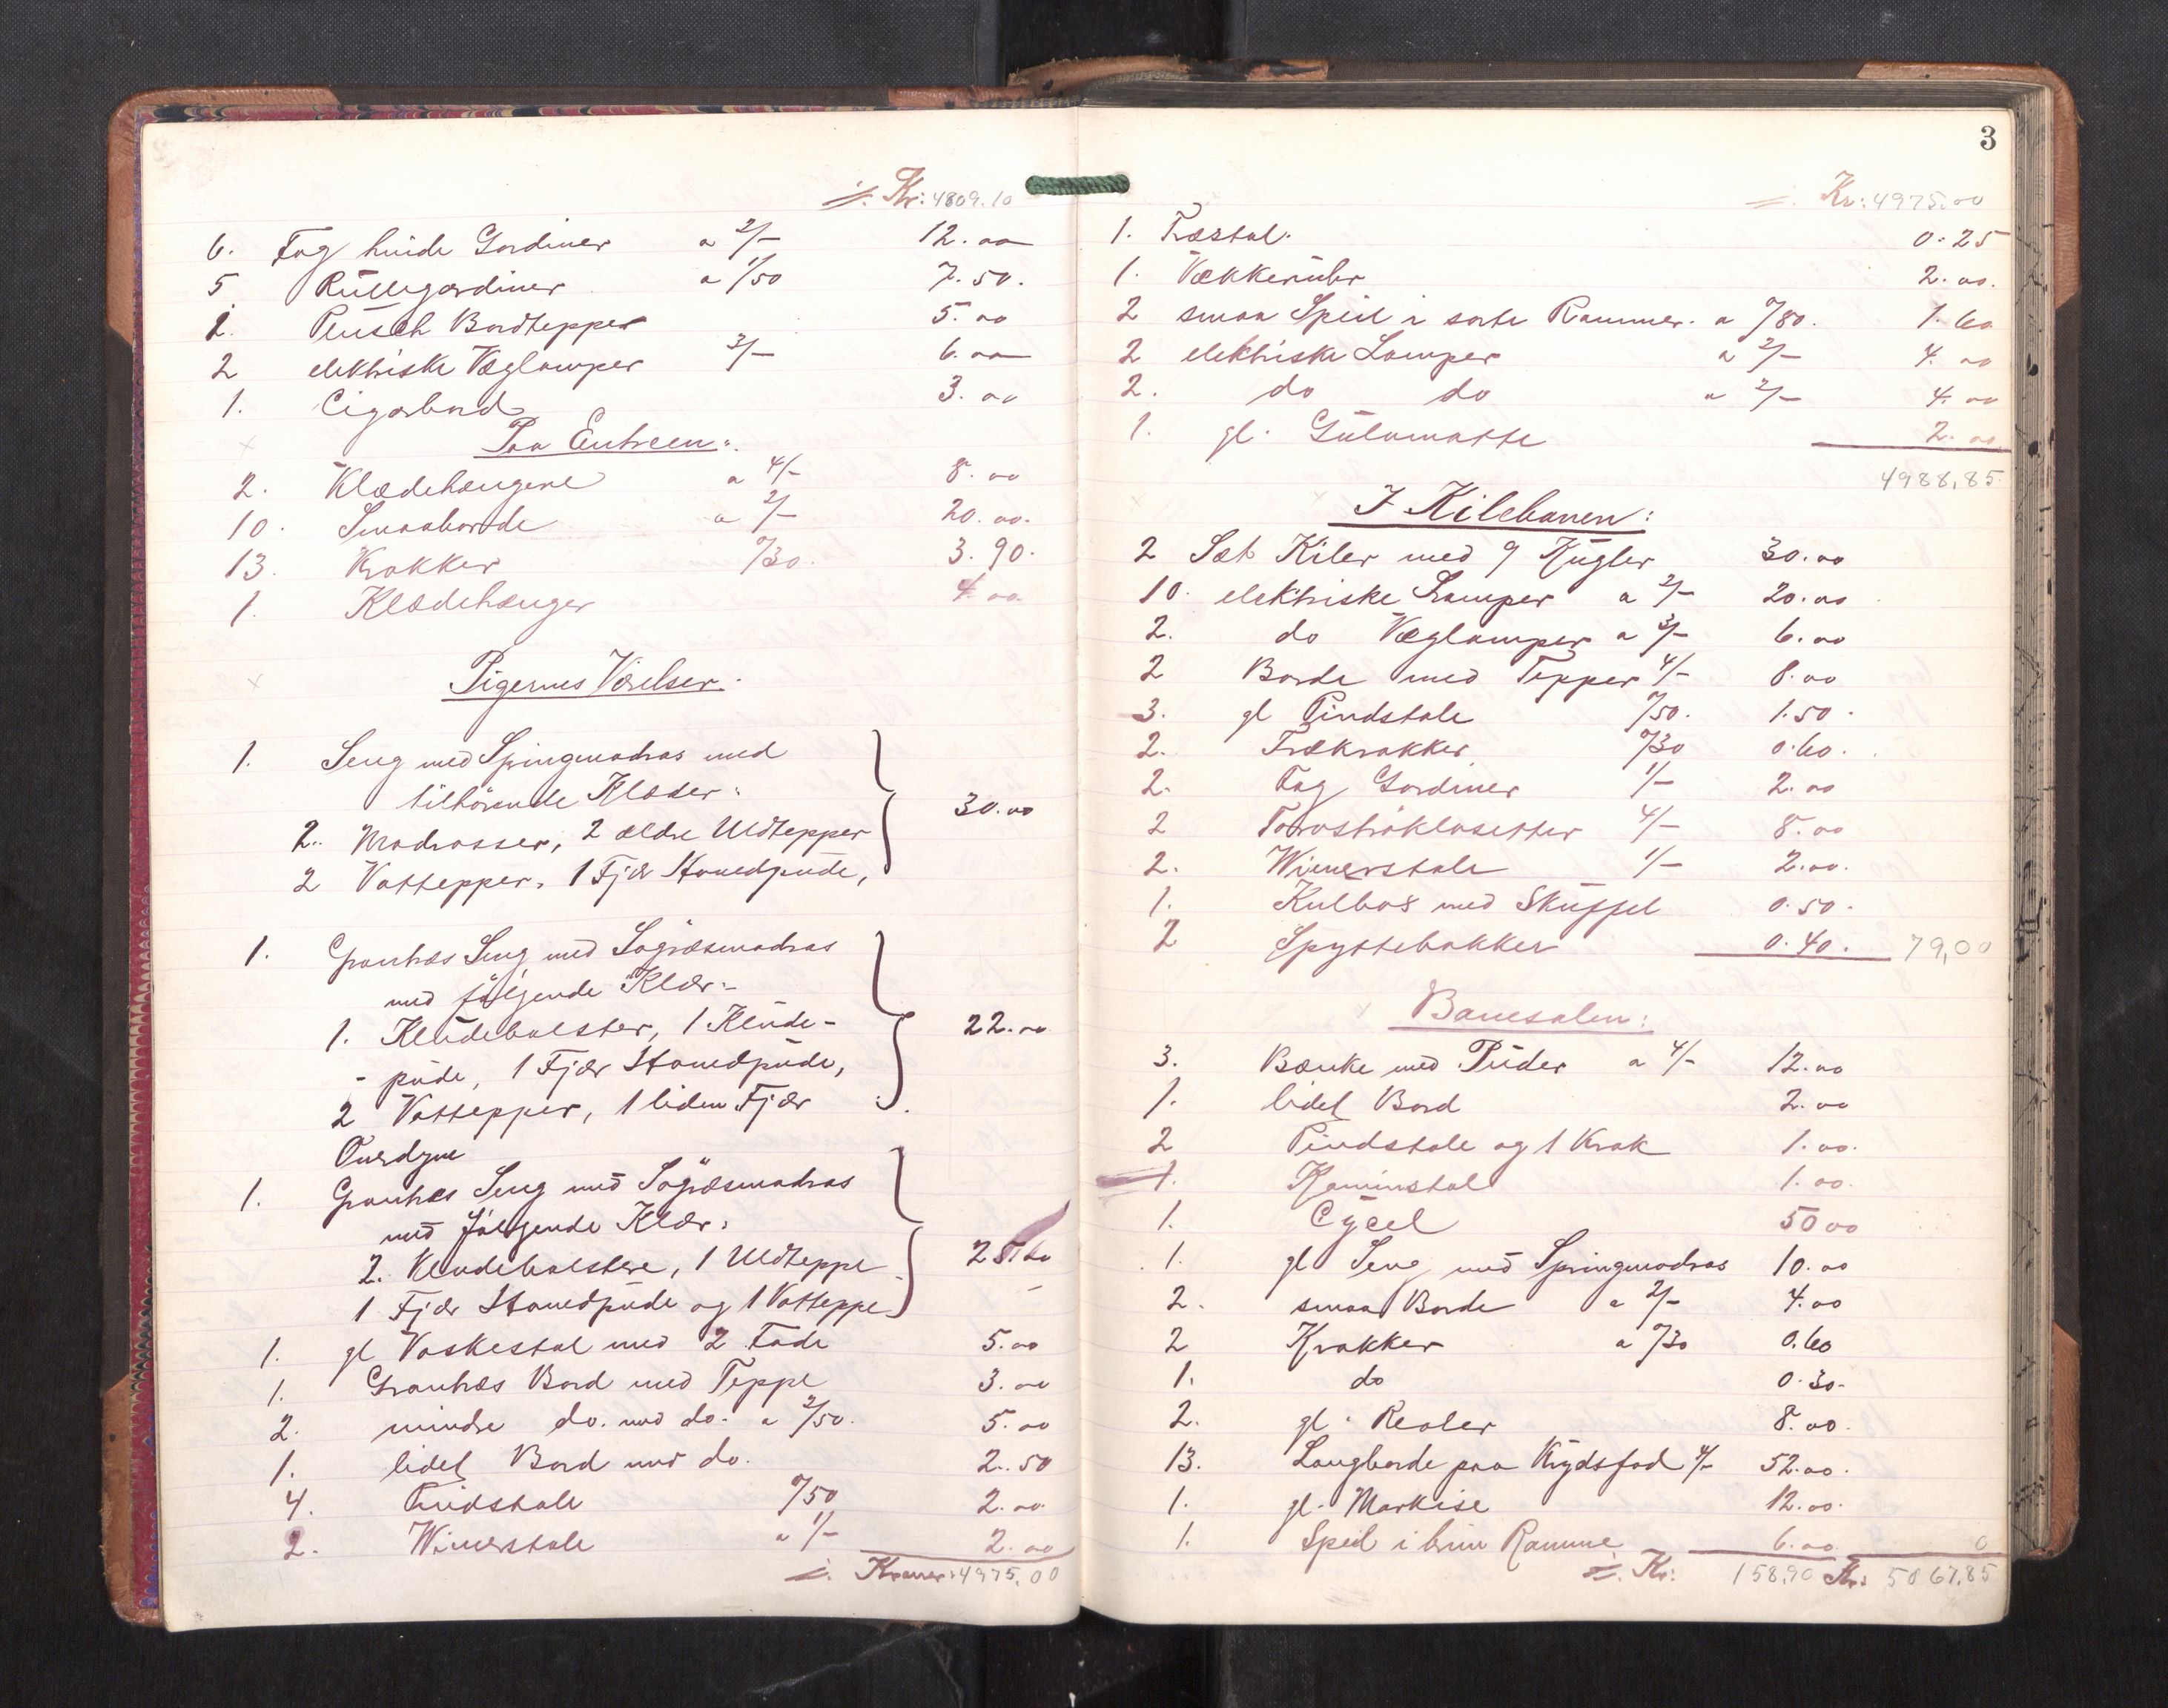 ÷ Kr: 4809.10
6. Fag hvide Gardiner a 2/- 12.00
5 Rullegardiner a 1/50 7.50.
1. Plüsch Bordtepper 5.00
2 elektriske Væglamper 3/- 6.00
1. Cigarbord 3.00
Paa Entreen:
2. Klædehængere a 4/- 8.00
10. Smaaborde a 2/- 20.00.
13. Krakker 0/30. 3.90.
1. Klædehænger 4.00
Pigernes Værelser.
1. Seng med Springmadras med
tilhörende Klæder:
2. Madrasser, 2 ældre Uldtepper
2 Vattepper, 1 Fjær Hovedpude, 30.00
1. Grantræs Seng med Søgræsmadras
med følgende Klær:
1. Kludebolster, 1 Klude-
- pude, 1 Fjær Hovedpude, 22.00
2 Vattepper, 1 liden Fjær
Overdyne
1. Grantræs Seng med Søgræsmadras
med følgende Klær:
2. Kludebolstere, 1 Uldteppe 25.00
1 Fjær Hovedpude og 1 Vatteppe
1. gl Vaskestol med 2 Fade 5.00
1. Grantræs Bord med Teppe 3.00
2. mindre do. med do. a 2/50. 5.00
1. lidet Bord med do. 2.50
4. Pindstole 0/50 2.00
2. Wienerstole a 1/- 2.00
÷ Kroner: 4975.00
3
÷ Kr: 4975.00
1. Træstol. 0.25
1. Vækkerühr 2.00.
2 smaa Speil i sorte Rammer. a 0/80. 1.60
2 elektriske Lamper a 2/- 4.00
2. do do a 2/- 4.00
1. gl. Gulvmatte 2.00
4988,85
I Kilebanen:
2 Sæt Kiler med 9 Kugler 30.00
10. elektriske Lamper a 2/- 20.00
2. do Væglamper a 3/- 6.00
2 Borde med Tepper 4/- 8.00
3. gl Pindstole 0/50. 1.50.
2. Trækrakker 0/30 0.60.
2. Fag Gardiner 1/- 2.00
2 Torvströklosetter 4/- 8.00
2. Wienerstole 1/- 2.00.
1. Kulbox med Skuffel 0.50.
2 Spyttebakker 0.40. 79,00
Banesalen:
3. Bænke med Puder a 4/- 12.00
1. lidet Bord 2.00
2 Pindstole og 1 Krak 1.00.
1. Kaminstol 1.00.
1. Cycel 50 00
1. gl Seng med Springmadras 10.00
2. smaa Borde a 2/- 4.00
2 Krakker a 0/30 0.60
1. do 0.30.
2. gl. Reoler 8.00.
13. Langborde paa Krydsfod 4/- 52.00.
1. gl. Markise 12.00.
1. Speil i brun Ramme 6.00
÷ Kr: 158.90 Kr: 5067.85